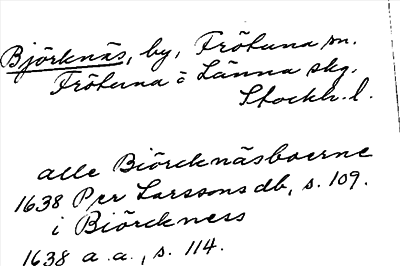 Björknäs, by, Frötuna sn.
Frötuna o Länna skg.
Stockh. l.
alle Biörcknäsboerne
1638 Per Larssons db, s. 109.
i Biörckness
1638 a.a., s. 114.